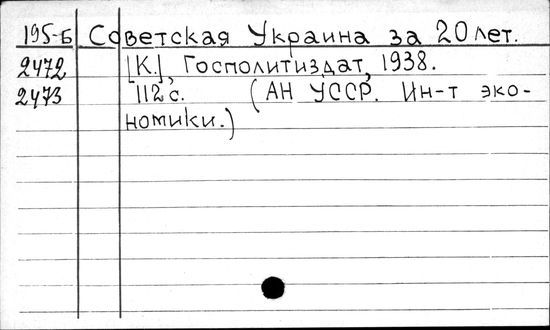 195-Б Советская Украина за 20 лет.
2472 [К.], Госполитиздат, 1938.
2473 112 с. (АН УССР. Ин-т эко-
номики.)